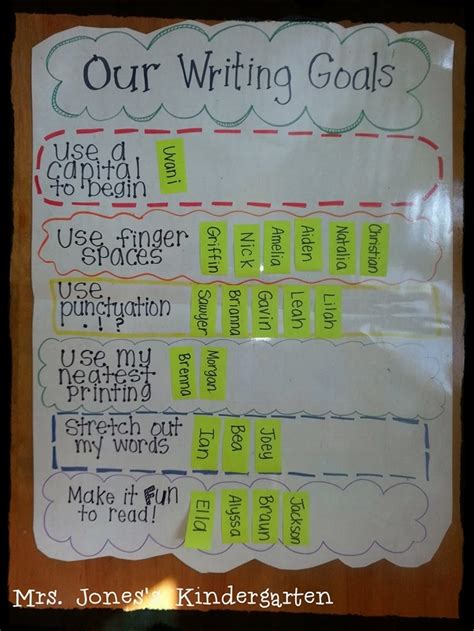 Our Writing Goals
Use a
capital
to begin
Uvani
Use finger
spaces
Griffin
Nick
Amelia
Aiden
Natalia
Christian
Use
punctuation
. ! ?
Sawyer
Brianna
Gavin
Leah
Lilah
Use my
neatest
printing
Brenna
Morgan
Stretch out
my words
Ian
Bea
Joey
Make it Fun
to read!
Ella
Alyssa
Braun
Jackson
Mrs. Jones's Kindergarten